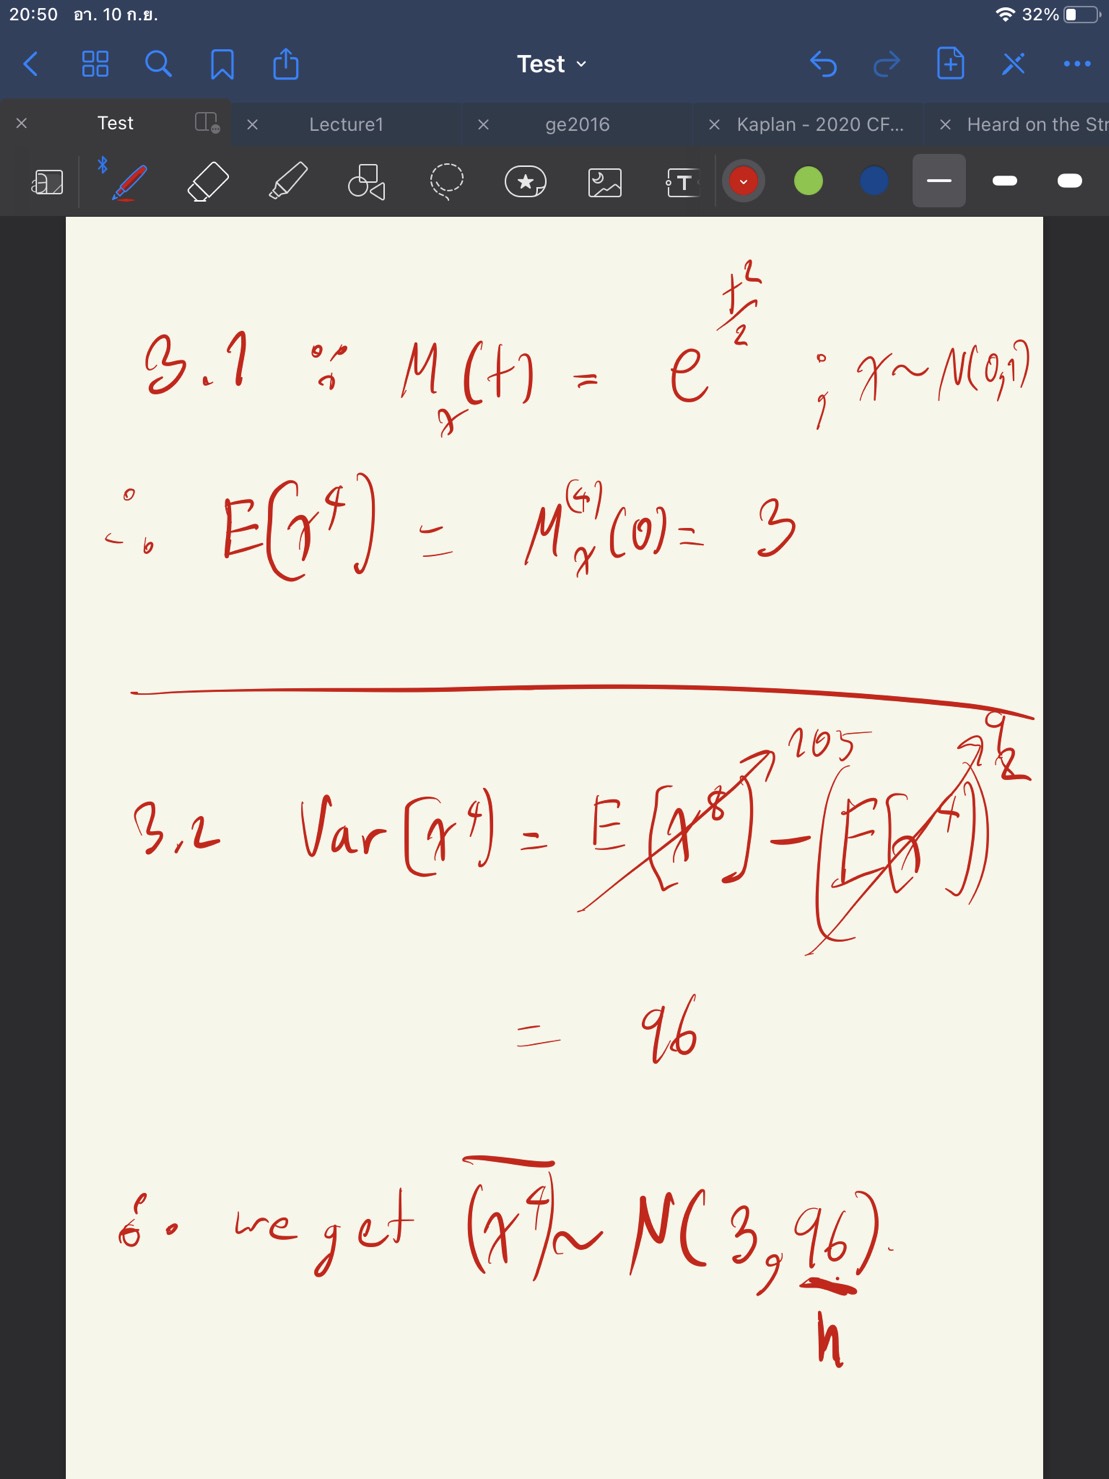 20:50 อา. 10 ก.ย. 32%
Test
Test Lecture1 ge2016 Kaplan - 2020 CF... Heard on the Str
T
3.1 ∵ M_x(t) = e^{t²/2} ; x ~ N(0,1)
∴ E[x⁴] = M_x^{(4)}(0) = 3
105 9
3.2 Var[x⁴] = E[x⁸] - (E[x⁴])²
= 96
∴ we get \overline{(x⁴)} ~ N(3, 96/n).